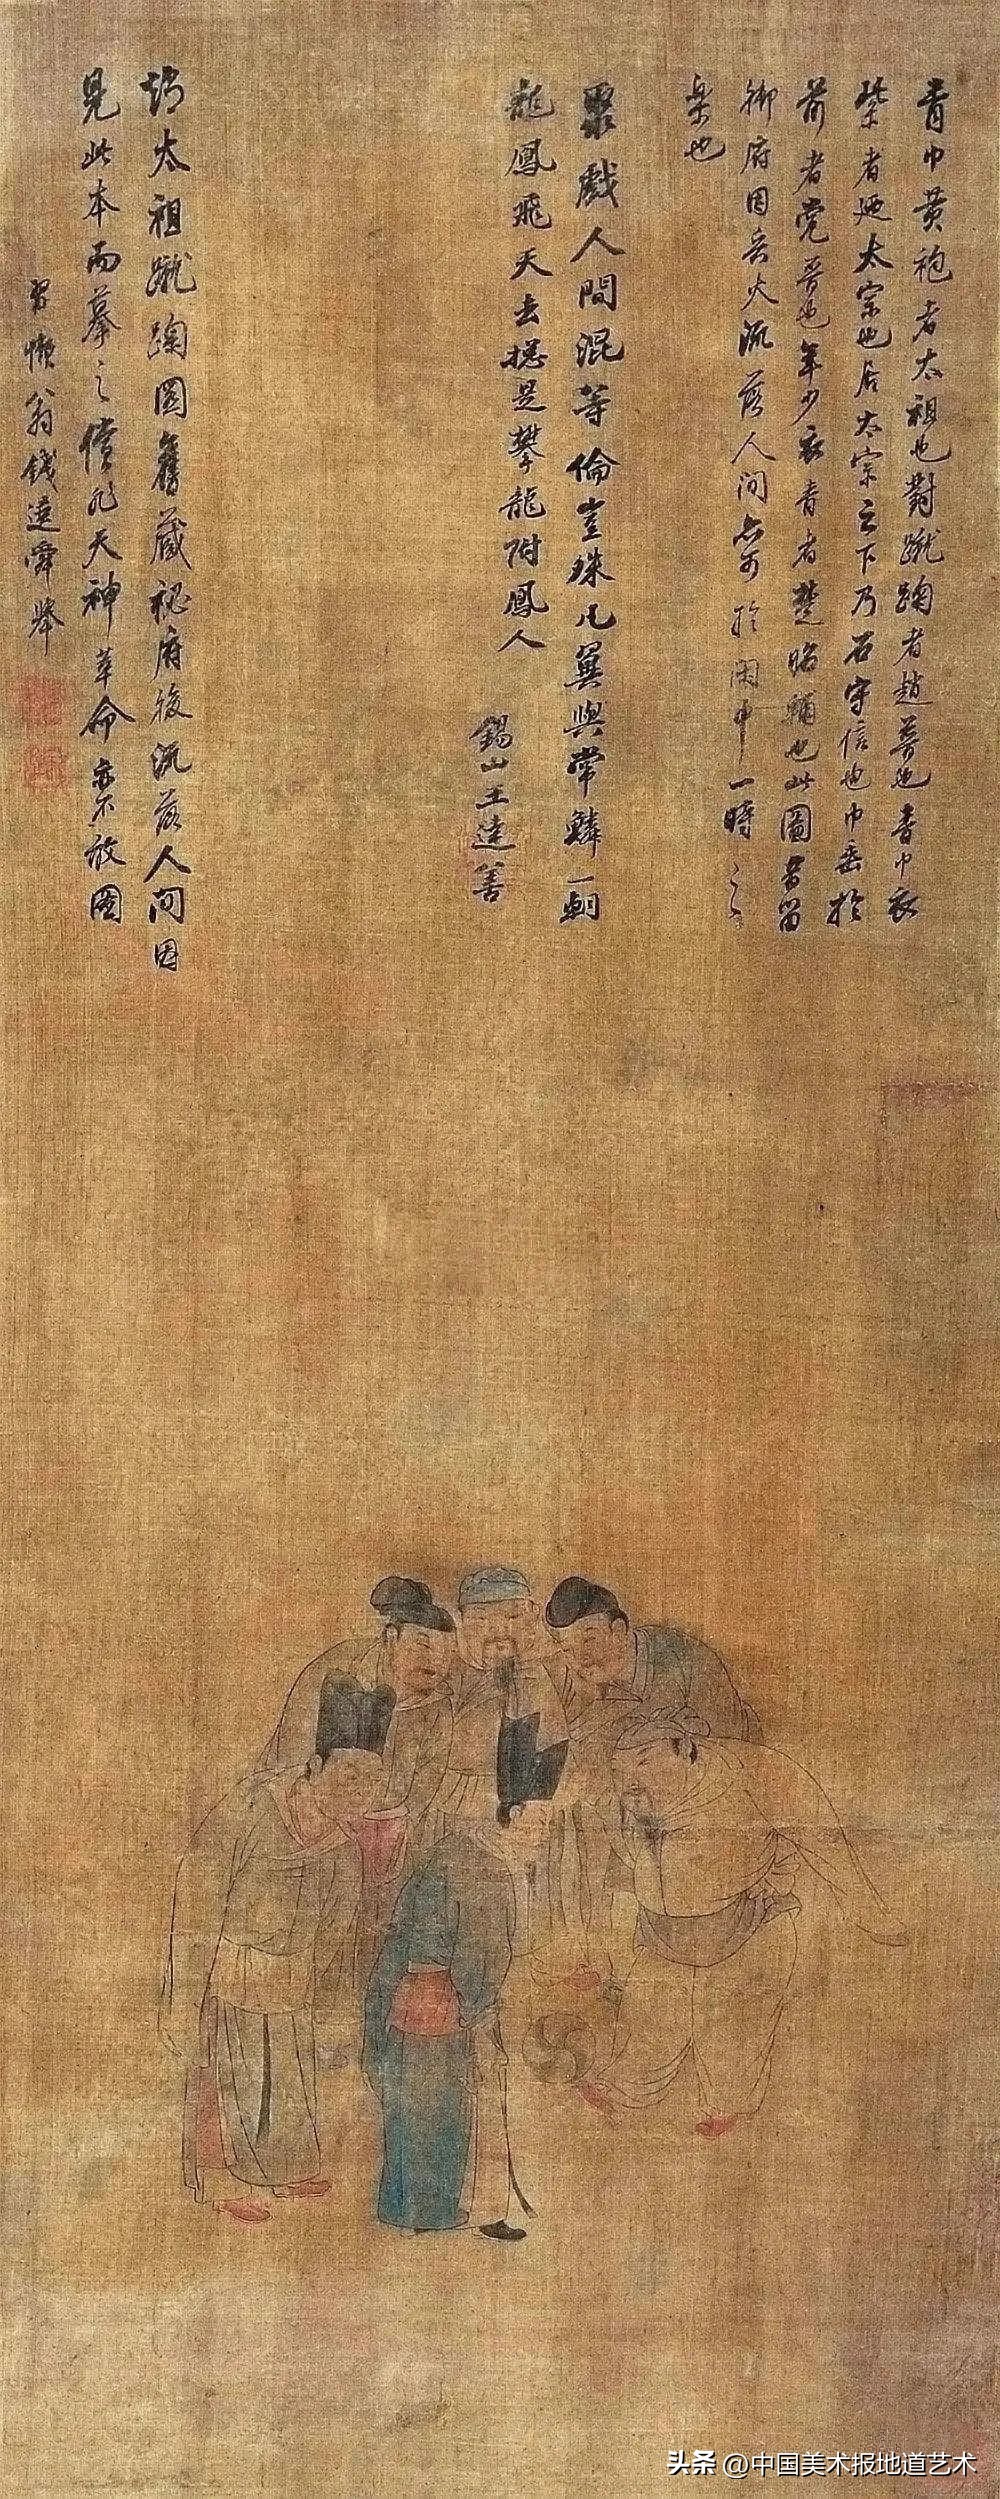 青巾黄袍者太祖也對蹴踘者趙普也青巾衣
紫者廼太宗也居太宗之下乃石守信也巾垂於
前者党晋也年少衣青者楚昭輔也此圖舊留
御府因兵火流落人間亦可於閑中一時之
樂也
聚戲人間混等倫豈殊凡翼與常鱗一朝
龍鳳飛天去總是攀龍附鳳人
錫山王達善
太祖蹴踘圖舊藏秘府後流落人間因
見此本而摹之儻非天神革命亦不敢圖
習懶翁錢選舜舉
头条 @中国美术报地道艺术